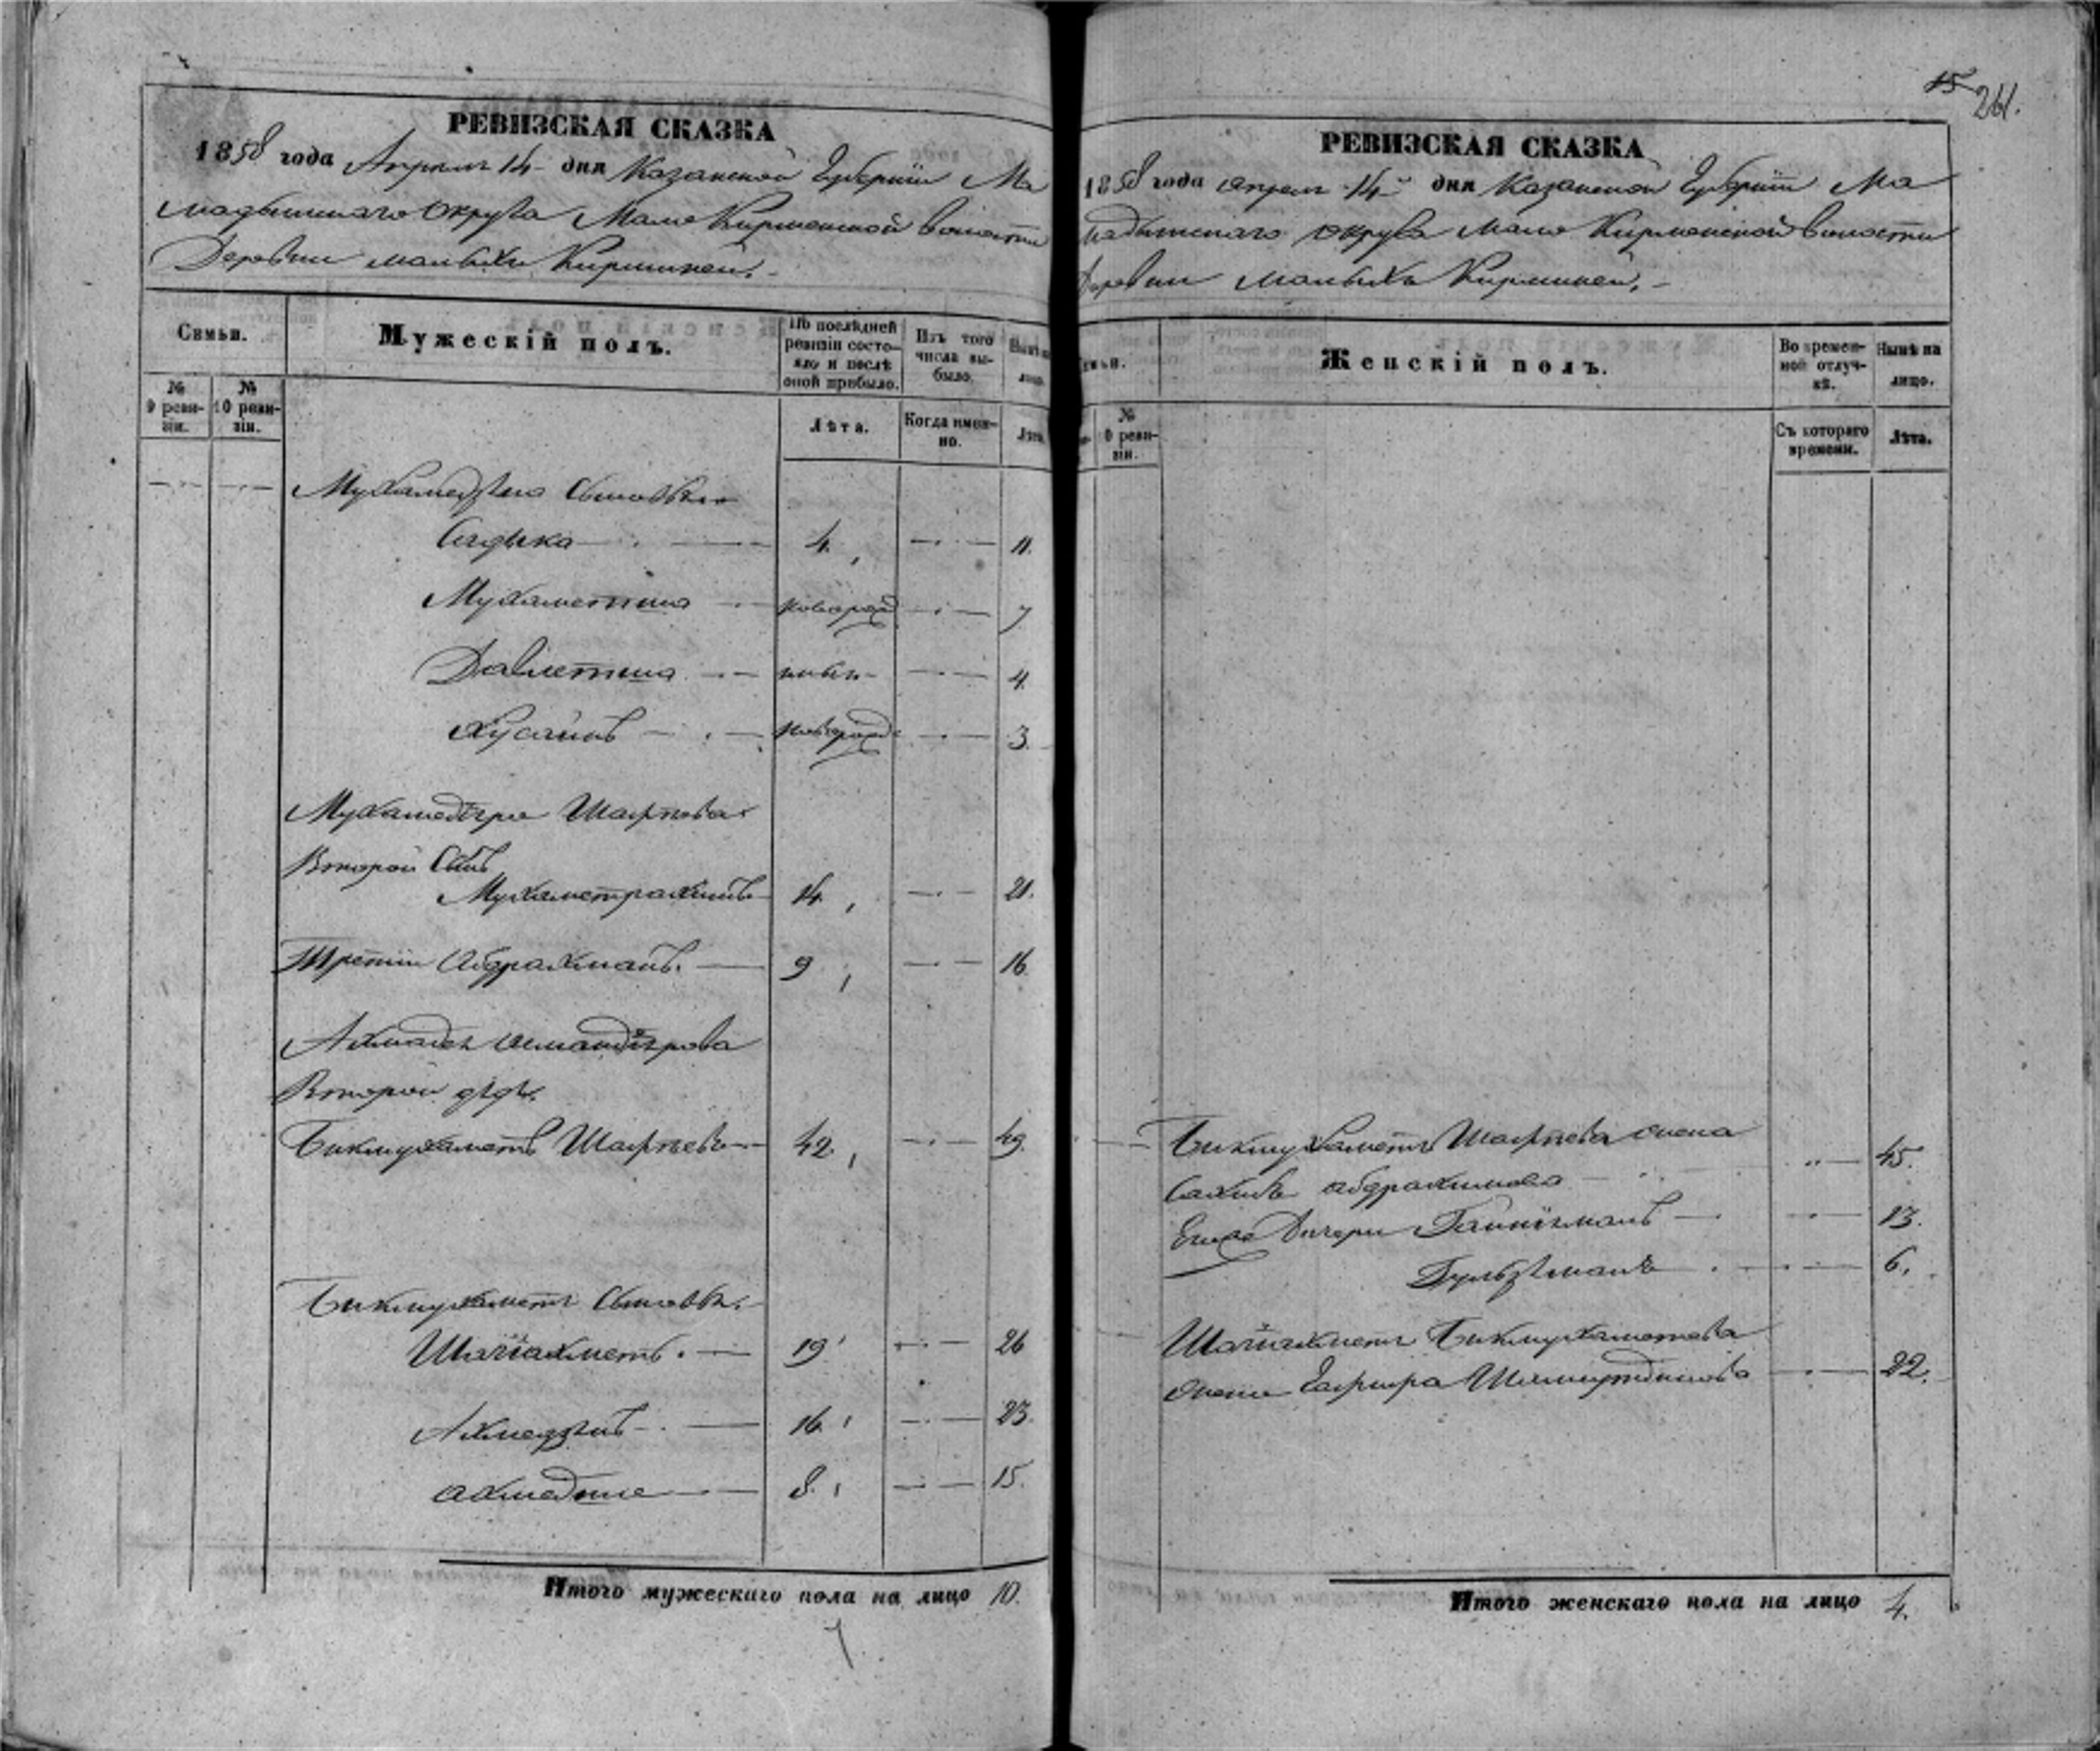 15
261.
РЕВИЗСКАЯ СКАЗКА
1858 года Апреля 14 дня Казанской Губерніи Ма
мадышскаго Округа Мало Кирменской волости
Деревни малыхъ Кирминей.
Семьи.
Мужескій полъ.
По послѣдней ревизіи состо-
яло и послѣ оной прибыло.
Изъ того числа вы-
было.
Нынѣ на лицо.
№ 9 реви-
зіи.
№ 10 реви-
зіи.
Лѣта.
Когда имен-
но.
Лѣта.
Мухамедзяна сыновья
Садыка 4. 11.
Мухаметша новорожд 7
Давлетша новъ 4.
Хусаинъ новорожд 3.
Мухамедъяра Шарпова
Второй Сынъ
Мухаметрахимъ 14. 21.
Третій Абдрахманъ. 9 16.
Второй дядя.
Бикмухаметъ Шарпевъ 42. 49.
Бикмухаметя Сыновья.
Шагіахметъ. 19 26
Ахмедзянъ 16. 23.
Ахмедша 8. 15.
Итого мужескаго пола на лицо 10.
РЕВИЗСКАЯ СКАЗКА
1858 года Апреля 14 дня Казанской Губерніи Ма
мадышскаго округа Мало Кирменской волости
Деревни малыхъ Кирминей.
Женскій полъ.
Во времен-
ной отлуч-
кѣ.
Нынѣ на лицо.
№ 10 реви-
зіи.
Съ котораго времени.
Лѣта.
Бикмухаметя Шарпева жена
Абдрахимова 45.
Его Дочери 13.
6.
Шагіахметя Бикмухаметева
жена 22.
Итого женскаго пола на лицо 4.